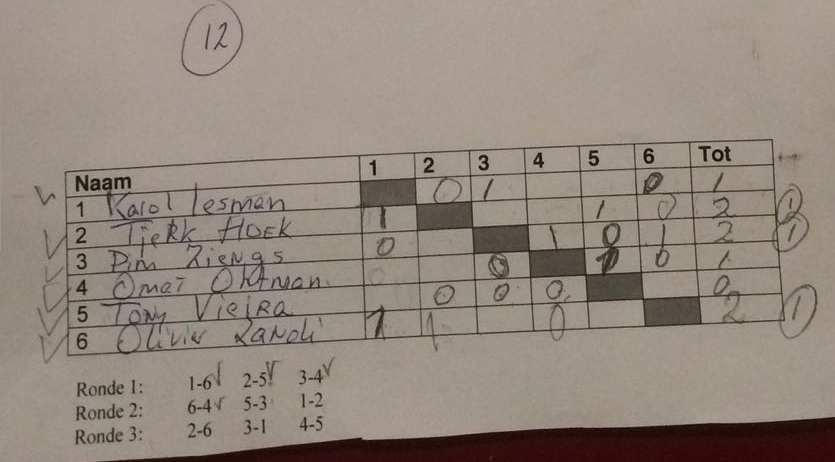 12
Naam 1 2 3 4 5 6 Tot
1 Karol Lesman 0 1 0 1
2 Tjerk Hoek 1 1 0 2 1
3 Pim Ziengs 0 1 0 1 2 1
4 Omar Ohtman 0 1 0 1
5 Tony Vieira 0 0 0 0
6 Olivier 1 1 0 2 1
Ronde 1: 1-6 √ 2-5 √ 3-4 √
Ronde 2: 6-4 √ 5-3 1-2
Ronde 3: 2-6 3-1 4-5